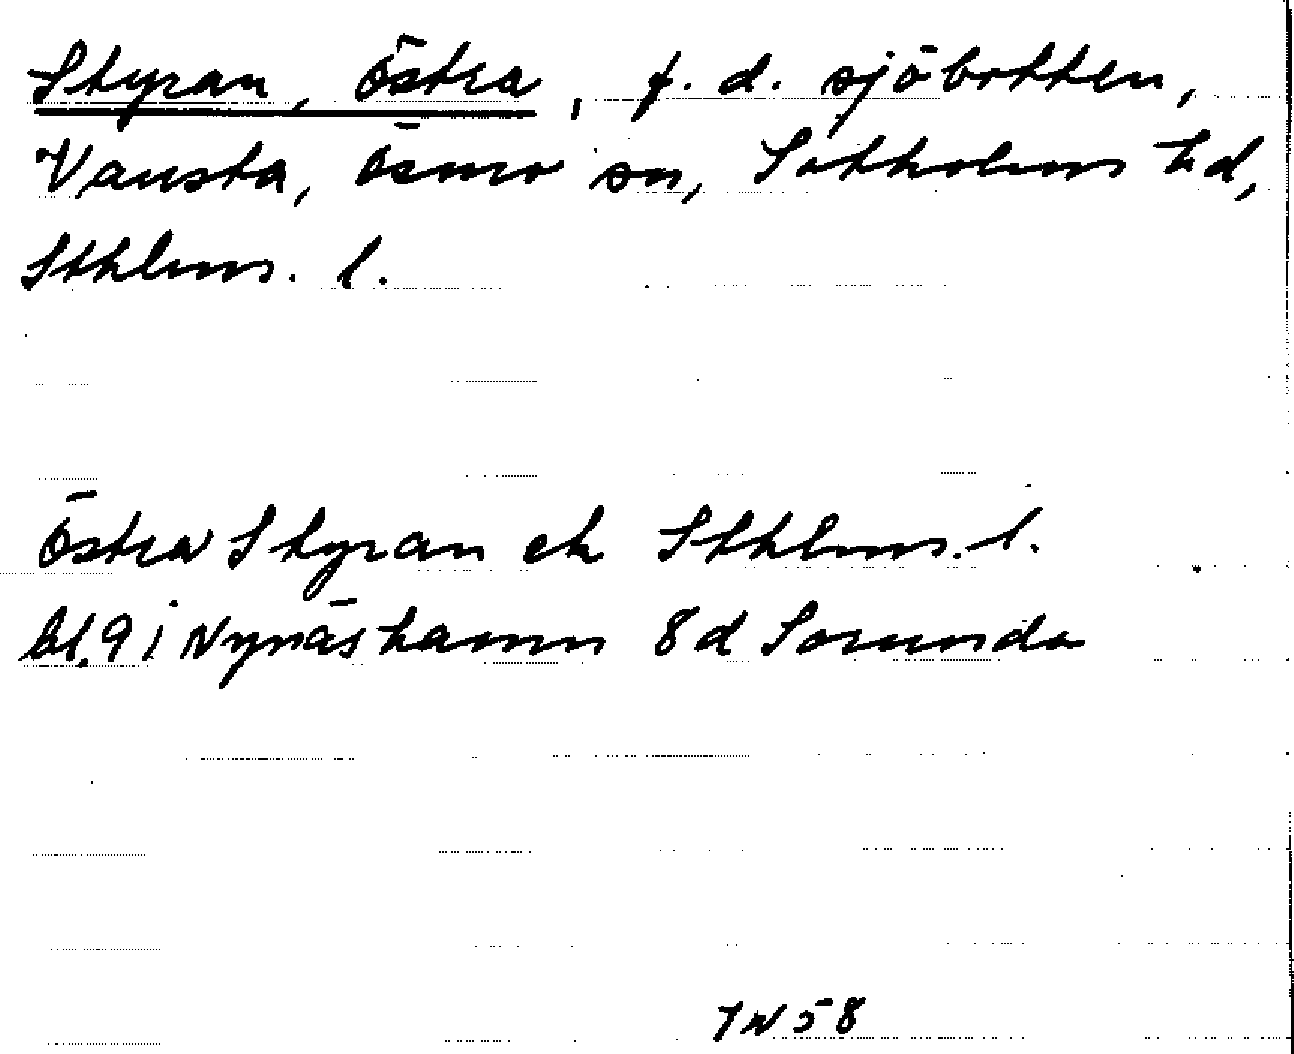 Styran, Östra, f. d. sjöbotten,
Vansta, Ösmo sn, Sotholms hd,
Sthlms. l.
Östra Styran ek Sthlms. l.
bl. 9 i Nynäshamn 8d Sorunda
58